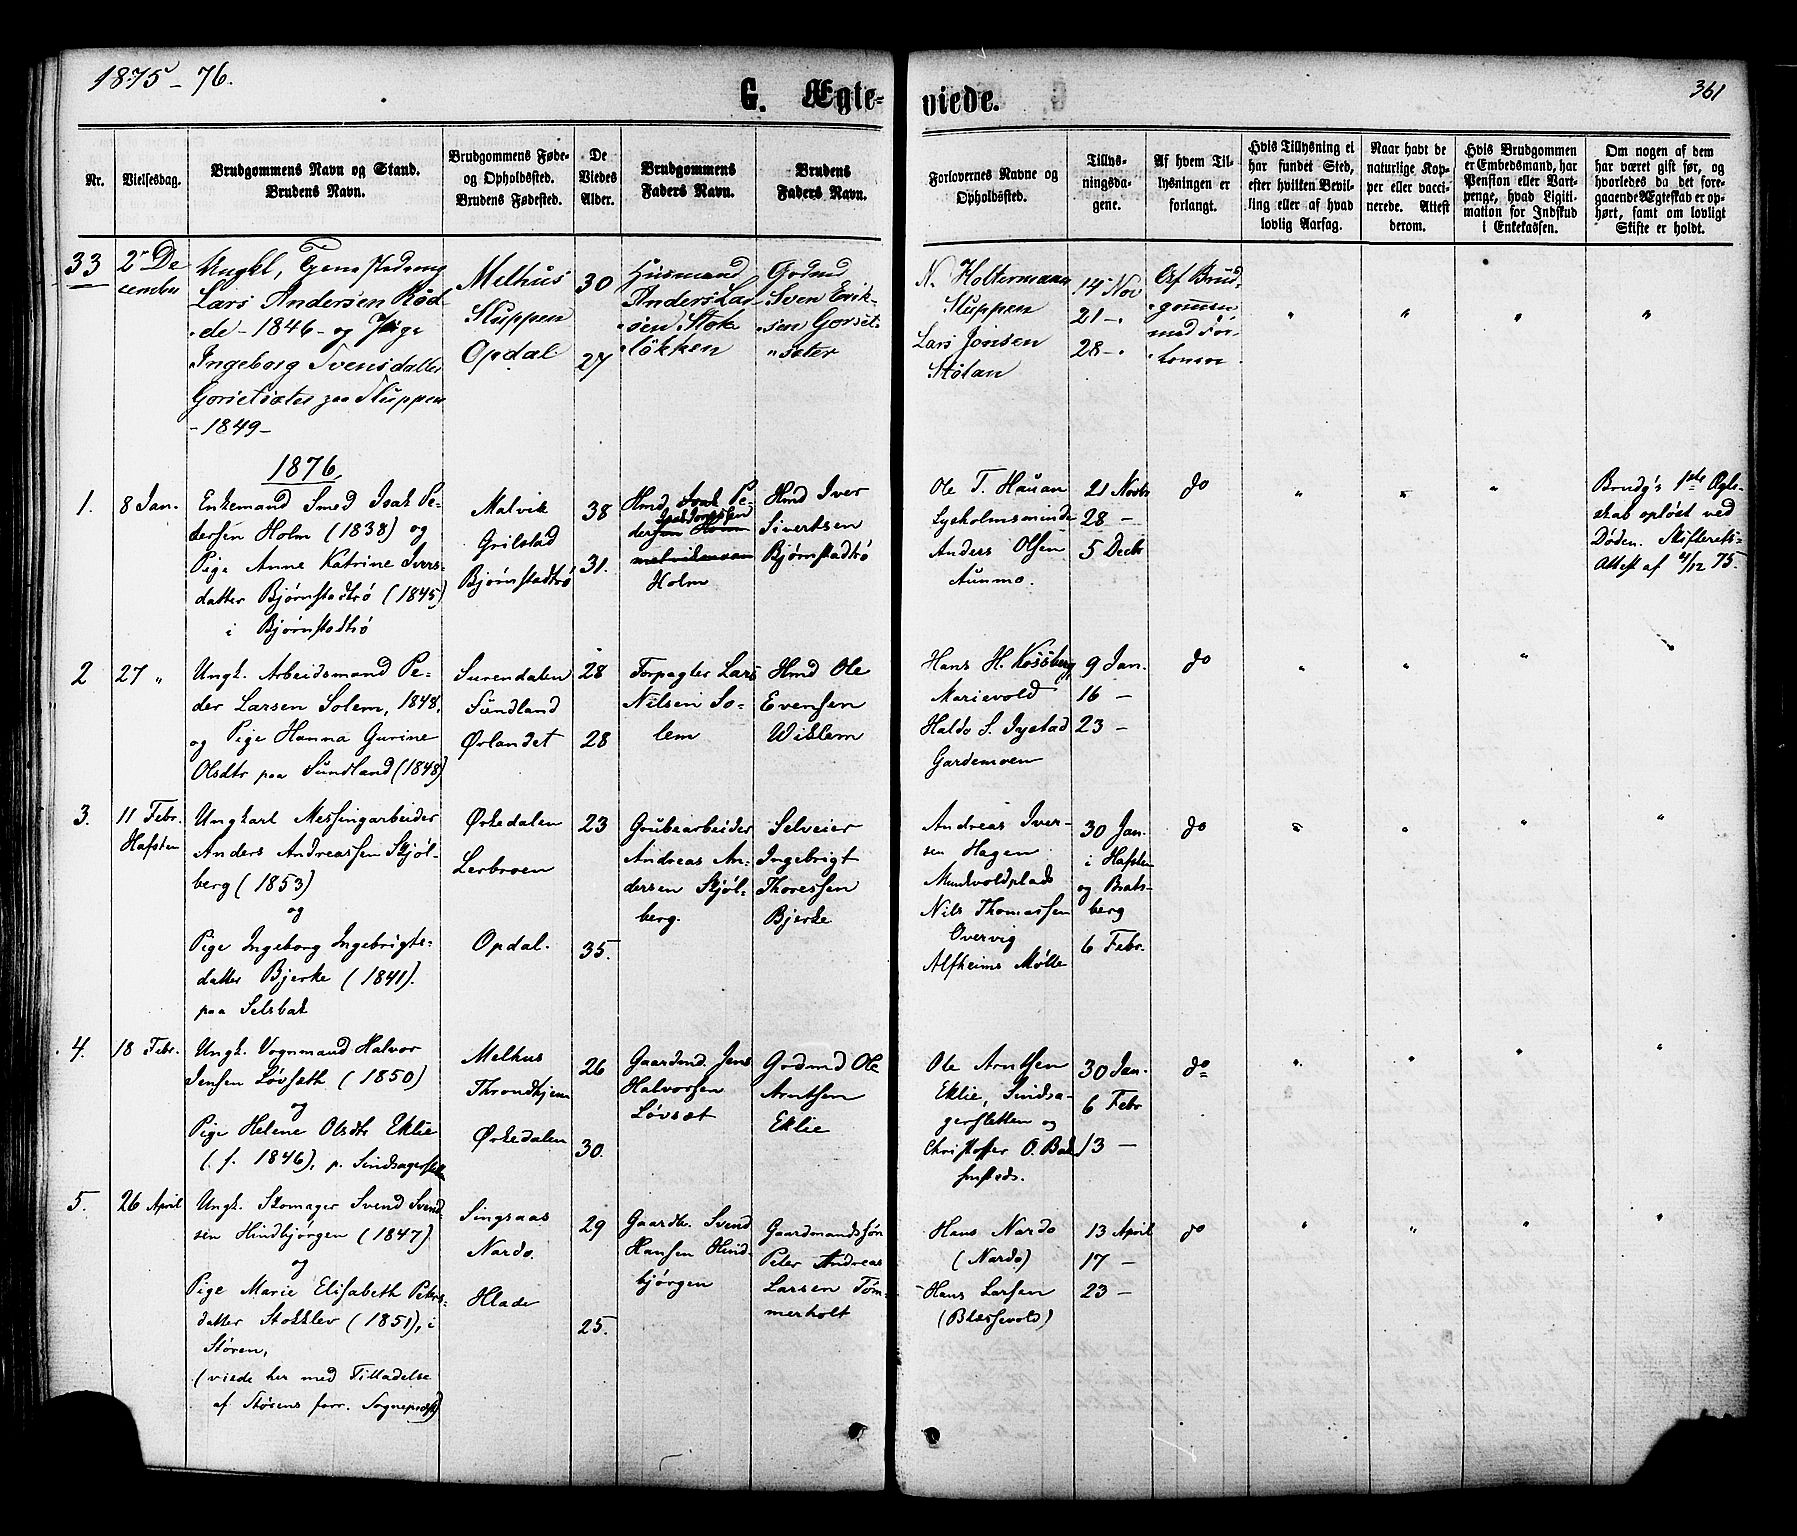 1875-76.
G. Ægte-
viede.
361
Nr.
Vielsesdag.
Brudgommens Navn og Stand.
Brudens Navn.
Brudgommens Føde-
og Opholdssted.
Brudens Fødested.
De
Viedes
Alder.
Brudgommens
Faders Navn.
Brudens
Faders Navn.
Forlovernes Navne og
Opholdssted.
Tillys-
ningsda-
gene.
Af hvem Til-
lysningen er
forlangt.
Hvis Tillysning ei
har fundet Sted,
efter hvilken Bevil-
ling eller af hvad
lovlig Aarsag.
Naar havt de
naturlige Kop-
per eller vacci-
nerede. Attest
derom.
Hvis Brudgommen
er Embedsmand, har
Pension eller Vart-
penge, hvad Ligiti-
mation for Indskud
i Enkekassen.
Om nogen af dem
har været gift før, og
hvorledes da det fore-
gaaende Ægteskab er op-
hørt, samt om lovligt
Skifte er holdt.
33
2 De
cember
Ungkl,
Lars Andersen Rød-
de - 1846 - og Pige
Ingeborg Svensdatter
Gorsetsæter paa Sluppen
- 1849 -
Melhus
Sluppen
Opdal
30
27
Husmand
Anders Lar-
sen Stok-
løkken
Gdmd
Sven Erik-
sen Gorset-
sæter
N. Holtermann
Sluppen
Lars Jonsen
Stølan
14 Nov
21 -
28 -
Af Brud-
gommen
med For-
loveren
" " " "
1876.
1.
8 Jan.
Enkemand Smed Isak Pe-
dersen Holm (1838) og
Pige Anne Katrine Ivers-
datter Bjørnstadtrø (1845)
i Bjørnstadtrø
Malvik
Grilstad
Bjørnstadtrø
38
31.
Hmd Isak Pe-
dersen Holm
Holm
Hmd Iver
Sivertsen
Bjørnstadtrø
Ole T. Hauan
Lysholmsminde
Anders Olsen
Aunmo.
21 Novb
28 -
5 Decb
do
" " "
Brudg's 1ste Ægte-
skab opløst ved
Døden. Skifterets-
Attest af 4/12 75.
2
27 "
Ungk. Arbeidsmand Pe-
der Larsen Solem, 1848,
og Pige Hanna Gurine
Olsdtr paa Sundland (1848)
Surendalen
Sundland
Ørlandet
28
28
Forpagter Lars
Nilsen So-
lem
Hmd Ole
Evensen
Wiklem
Hans H. Kossberg
Marievold
Haldo S. Tystad
Gardemoen
9 Jan.
16 -
23 -
do
" " "
3.
11 Febr.
Hafsten
Ungkarl Messingarbeider
Anders Andreassen Skjøl-
berg (1853)
og
Pige Ingeborg Ingebrigts-
datter Bjerke (1841).
paa Selsbak
Ørkedalen
Lerbroen
Opdal.
23
35.
Grubearbeider
Andreas An-
dersen Skjøl-
berg.
Selveier
Ingebrigt
Thoressen
Bjerke
Andreas Iver-
sen Hagen
Munkvoldplads
Nils Thomassen
Overvig
Alfheims Mølle
30 Jan.
i Hafsten
og Brats-
berg
6 Febr.
do
" " " "
4.
18 Febr.
Ungk. Vognmand Halvor
Jensen Løvseth (1850)
og
Pige Helene Olsdtr Eklie
(. f. 1846), p. Sindsagersletten
Melhus
Throndhjem
Ørkedalen
26
30.
Gaardmd. Jens
Halvorsen
Løvsæt
Gdmd Ole
Arntsen
Eklie
Ole Arntsen
Eklie, Sindsa-
gersletten og
Christoffer O. Bak
30 Jan.
6 Febr
13 -
do
" " " "
5.
26 April
Ungk. Skomager Svend Svend-
sen Hindbjørgen (1847)
og
Pige Marie Elisabeth Peters-
datter Stokklev (1851), i
Støren,
(viede her med Tilladelse
af Størens forr. Sognepræst)
Singsaas
Nardo.
Hlade
29
25.
Gaardbr. Svend
Hansen Hind-
bjørgen
Gaardmandssøn
Peter Andreas
Larsen Tøm-
merholt
Hans Nardo
(Nardo)
Hans Larsen
(Blæssevold)
13 April
17 -
23 -
do
" " " "